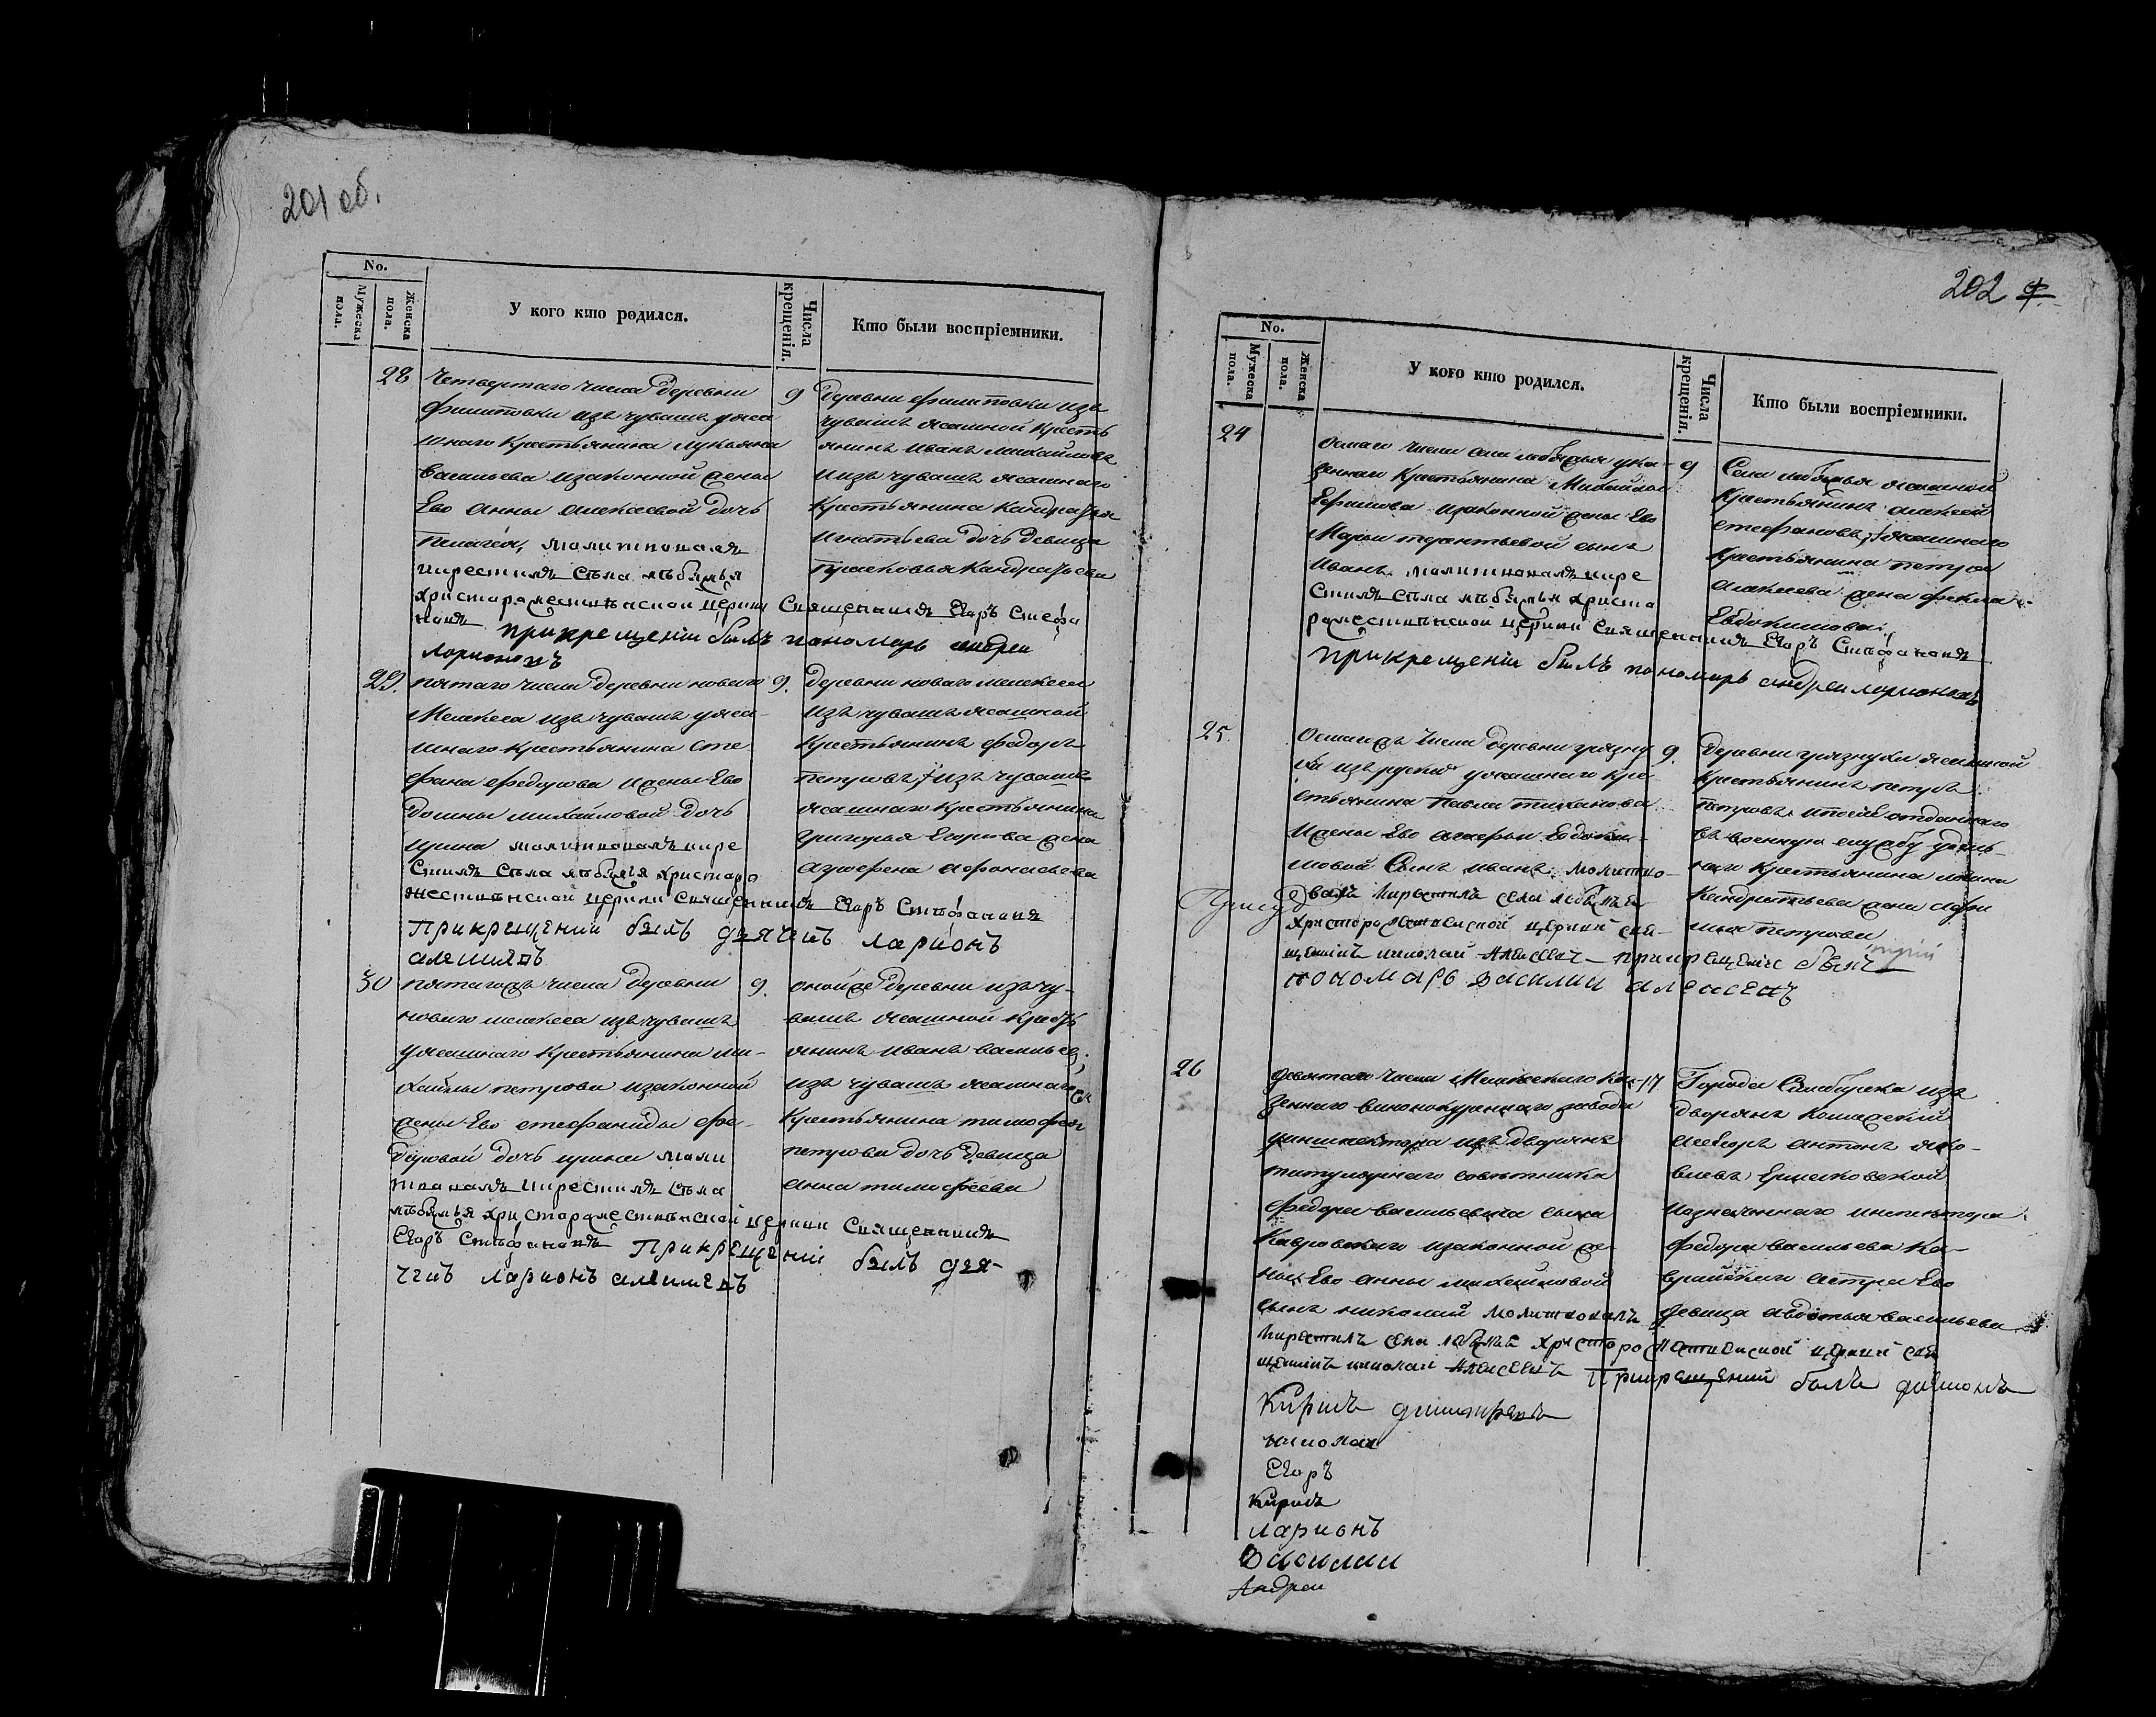 201 об.
No.
Мужеска пола.
Женска пола.
У кого кто родился.
Числа крещенія.
Кто были воспріемники.
28
Четвертаго числа деревни
филиповки изъ чувашъ уяса
шнаго крестьянина Лукьяна
Васильева изаконной жены
Ево Анны алексеевой дочь
Пелагея, молитвовалъ
икрестилъ Села
христорожественской церкви Священникъ Егоръ Стефа
новъ прикрещеніи былъ пономарь андреи
Ларионовъ
9
Деревни филиповки изъ
чувашъ ясашной кресть
янинъ Иванъ михайловъ
иизъ чувашъ ясашнаго
крестьянина Кандратья
Игнатьева дочь девица
Прасковья Кандратьева
29.
пятаго числа деревни новаго
Мелекеса изъ чувашъ уяса-
шнаго крестьянина Сте
фана федорова ижены Ево
домны михайловой дочь
ирина молитвовалъ икре
стилъ Села христоро
жественской церкви священникъ Егоръ Стефановъ
Прикрещении былъ дьячекъ ларионъ
9.
деревни новаго мелекеса
изъ чувашъ ясашной
крестьянинъ федоръ
петровъ, иизъ чувашъ
ясашнаго крестьянина
григорья Егорова жена
агрофена афонасьева
30
пятагожъ числа деревни
новаго мелекеса изъ чувашъ
уясашнаго крестьянина ми-
хайлы петрова изаконной
жены Ево стефаниды фе-
доровой дочь ирина моли
твовалъ икрестилъ Села
христорожественской церкви Священникъ
Егоръ Стефановъ Прикрещеніи былъ дья-
чекъ ларионъ
9.
онойже деревни изъ чу-
вашъ ясашной кресть
янинъ иванъ васильев;
изъ чувашъ ясашнаго
крестьянина тимофея
петрова дочь девица
анна тимофеева
202
No.
Мужеска пола.
Женска пола.
У кого кто родился.
Числа крещенія.
Кто были воспріемники.
24
осмаго числа села уяса-
крестьянина Михайлы
Ефимова изаконной жены Ево
Марьи терентьевой сынъ
Иванъ. молитвовалъ икре
стилъ Села христо
рожественской церкви Священникъ Егоръ Стефановъ
прикрещеніи былъ пономарь андреи ларионовъ
9
Села ясашной
крестьянинъ алексей
стефановъ, иясашнаго
крестьянина петра
алексеева жена фекла
Евдокимова.
25.
Осмагожъ числа деревни грязну
хи изъ уясашнаго кре-
стьянина Павла тиханова
ижены Ево Евдоки-
мовой Сынъ иванъ. молитво-
валъ икрестилъ села
христорожественской церкви свя-
щенникъ николай Алексеевъ прикрещеніи былъ
пономарь василии алексеевъ
9.
деревни грязнухи ясашной
крестьянинъ петръ
петровъ, отданнаго
въ военную службу
наго крестьянина
Кандратьева жена
петрова
26
девятаго числа Мелекескаго ка-
зеннаго винокуреннаго завода
изъ дворянъ
титулярнаго советника
федора васильевича сына
изаконной же-
ны Ево анны михайловой
сынъ николай молитвовалъ
икрестилъ села христорожественской церкви свя
щенникъ николай Алексеевъ Прикрещении былъ диаконъ
Кирилъ димитревъ
17
Города Симбирска изъ
дворянъ колежский
асесоръ антонъ яко-
влевъ
федора васильева
сестра Ево
девица авдотья васильева
николаи
Егоръ
Кирилъ
ларионъ
Василии
Андреи